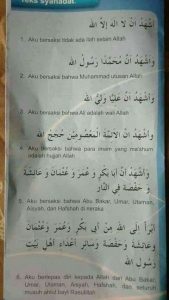 Teks syahadat:
اَشْهَدُ اَنْ لَا اِلٰهَ اِلَّا اللّٰهُ
1. Aku bersaksi tidak ada ilah selain Allah
وَاَشْهَدُ اَنَّ مُحَمَّدًا رَسُوْلُ اللّٰهِ
2. Aku bersaksi bahwa Muhammad utusan Allah
وَاَشْهَدُ اَنَّ عَلِيًّا وَلِيُّ اللّٰهِ
3. Aku bersaksi bahwa Ali adalah wali Allah
وَاَشْهَدُ اَنَّ الْاَئِمَّةَ الْمَعْصُوْمِيْنَ حُجَجُ اللّٰهِ
4. Aku bersaksi bahwa para imam yang ma'shum
adalah hujjah Allah
وَاَشْهَدُ اَنَّ اَبَا بَكْرٍ وَ عُمَرَ وَ عُثْمَانَ وَ عَائِشَةَ
وَ حَفْصَةَ فِي النَّارِ
5. Aku bersaksi bahwa Abu Bakar, Umar,
Utsman, Aisyah, dan Hafshah di neraka
اَبْرَأُ اِلَى اللّٰهِ مِنْ اَبِيْ بَكْرٍ وَ عُمَرَ وَعُثْمَانَ
وَعَائِشَةَ وَ حَفْصَةَ وَسَائِرِ اَعْدَاءِ اَهْلِ بَيْتِ
رَسُوْلِ اللّٰهِ
6. Aku berlepas diri kepada Allah dari Abu Bakar,
Umar, Utsman, Aisyah, Hafshah, dan seluruh
musuh ahlul bayt Rasulillah